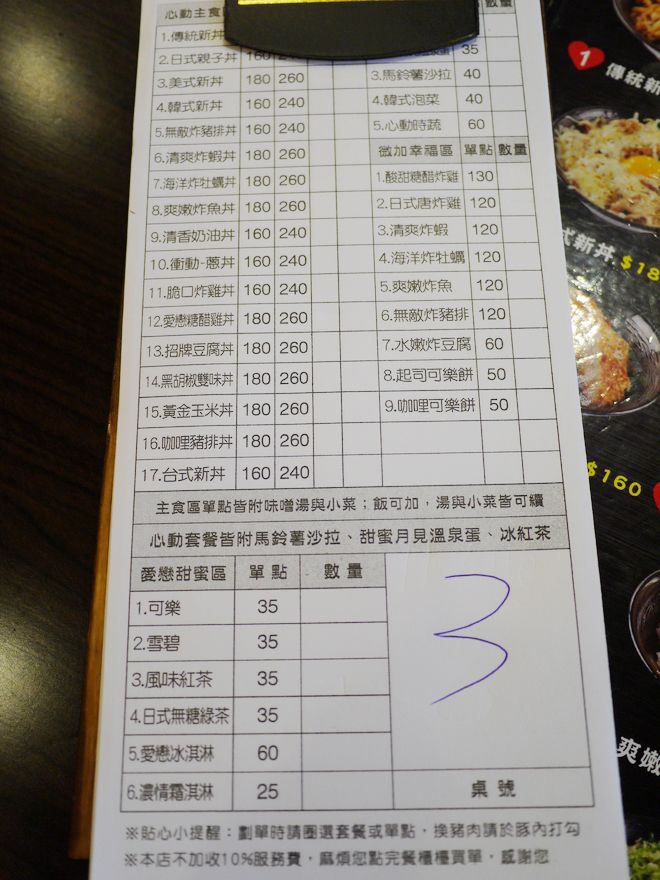 心動主食
數量
1.傳統新丼
2.日式親子丼 160
35
3.美式新丼 180 260
3.馬鈴薯沙拉 40
4.韓式新丼 160 240
4.韓式泡菜 40
5.無敵炸豬排丼 160 240
5.心動時蔬 60
6.清爽炸蝦丼 180 260
微加幸福區 單點 數量
7.海洋炸牡蠣丼 180 260
1.酸甜糖醋炸雞 130
8.爽嫩炸魚丼 180 260
2.日式唐炸雞 120
9.清香奶油丼 160 240
3.清爽炸蝦 120
10.衝動-蔥丼 160 240
4.海洋炸牡蠣 120
11.脆口炸雞丼 160 240
5.爽嫩炸魚 120
12.愛戀糖醋雞丼 180 260
6.無敵炸豬排 120
13.招牌豆腐丼 180 260
7.水嫩炸豆腐 60
14.黑胡椒雙味丼 180 260
8.起司可樂餅 50
15.黃金玉米丼 180 260
9.咖哩可樂餅 50
16.咖哩豬排丼 180 260
17.台式新丼 160 240
主食區單點皆附味噌湯與小菜；飯可加，湯與小菜皆可續
心動套餐皆附馬鈴薯沙拉、甜蜜月見溫泉蛋、冰紅茶
愛戀甜蜜區 單點 數量
1.可樂 35
2.雪碧 35
3.風味紅茶 35
4.日式無糖綠茶 35
5.愛戀冰淇淋 60
6.濃情霜淇淋 25
3
桌號
※貼心小提醒：劃單時請圈選套餐或單點，換豬肉請於豚內打勾
※本店不加收10%服務費，麻煩您點完餐櫃檯買單，感謝您
1 傳統新
式新丼 $18
$160
爽嫩